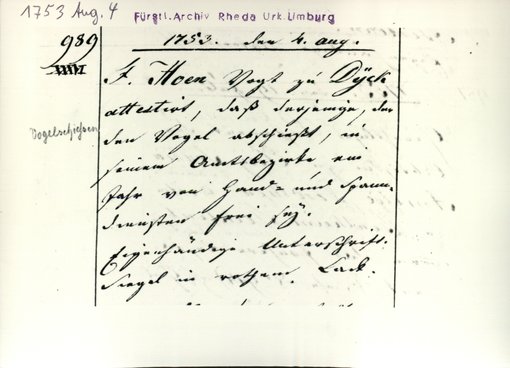 1753 Aug. 4
Fürstl. Archiv Rheda Urk. Limburg
989
1753. den 4. aug.
F. Hoen Vogt zu Dyck
attestirt, daß derjenige, der
den Vogel abschießt, in
Vogelschießen
seinem Amtsbezirke ein
Jahr von Hand- und Spann-
diensten frei sey.
Eigenhändige Unterschrift.
Siegel in rothem Lack.